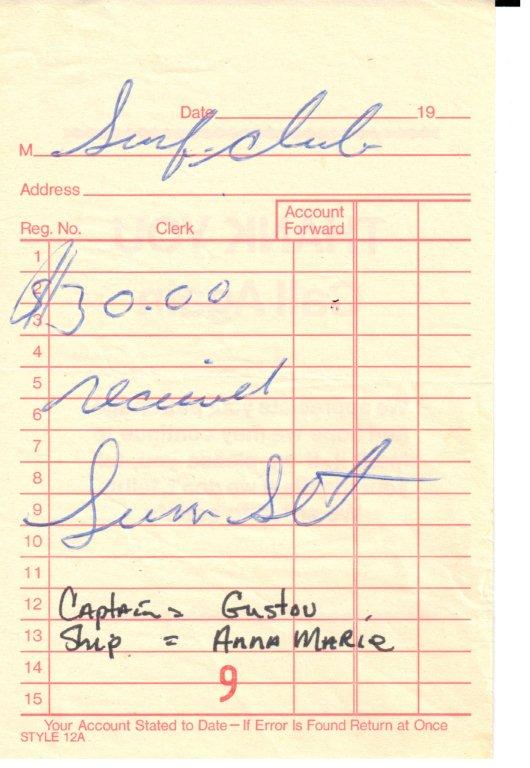 Date 19
M Surf-club
Address
Reg. No. Clerk Account Forward
1
2
$30.00
3
4
5
received
6
7
8
Sun Set
9
10
11
12 Captain = Gustou
13 Ship = Anna Marie
14
9
15
Your Account Stated to Date – If Error Is Found Return at Once
STYLE 12A